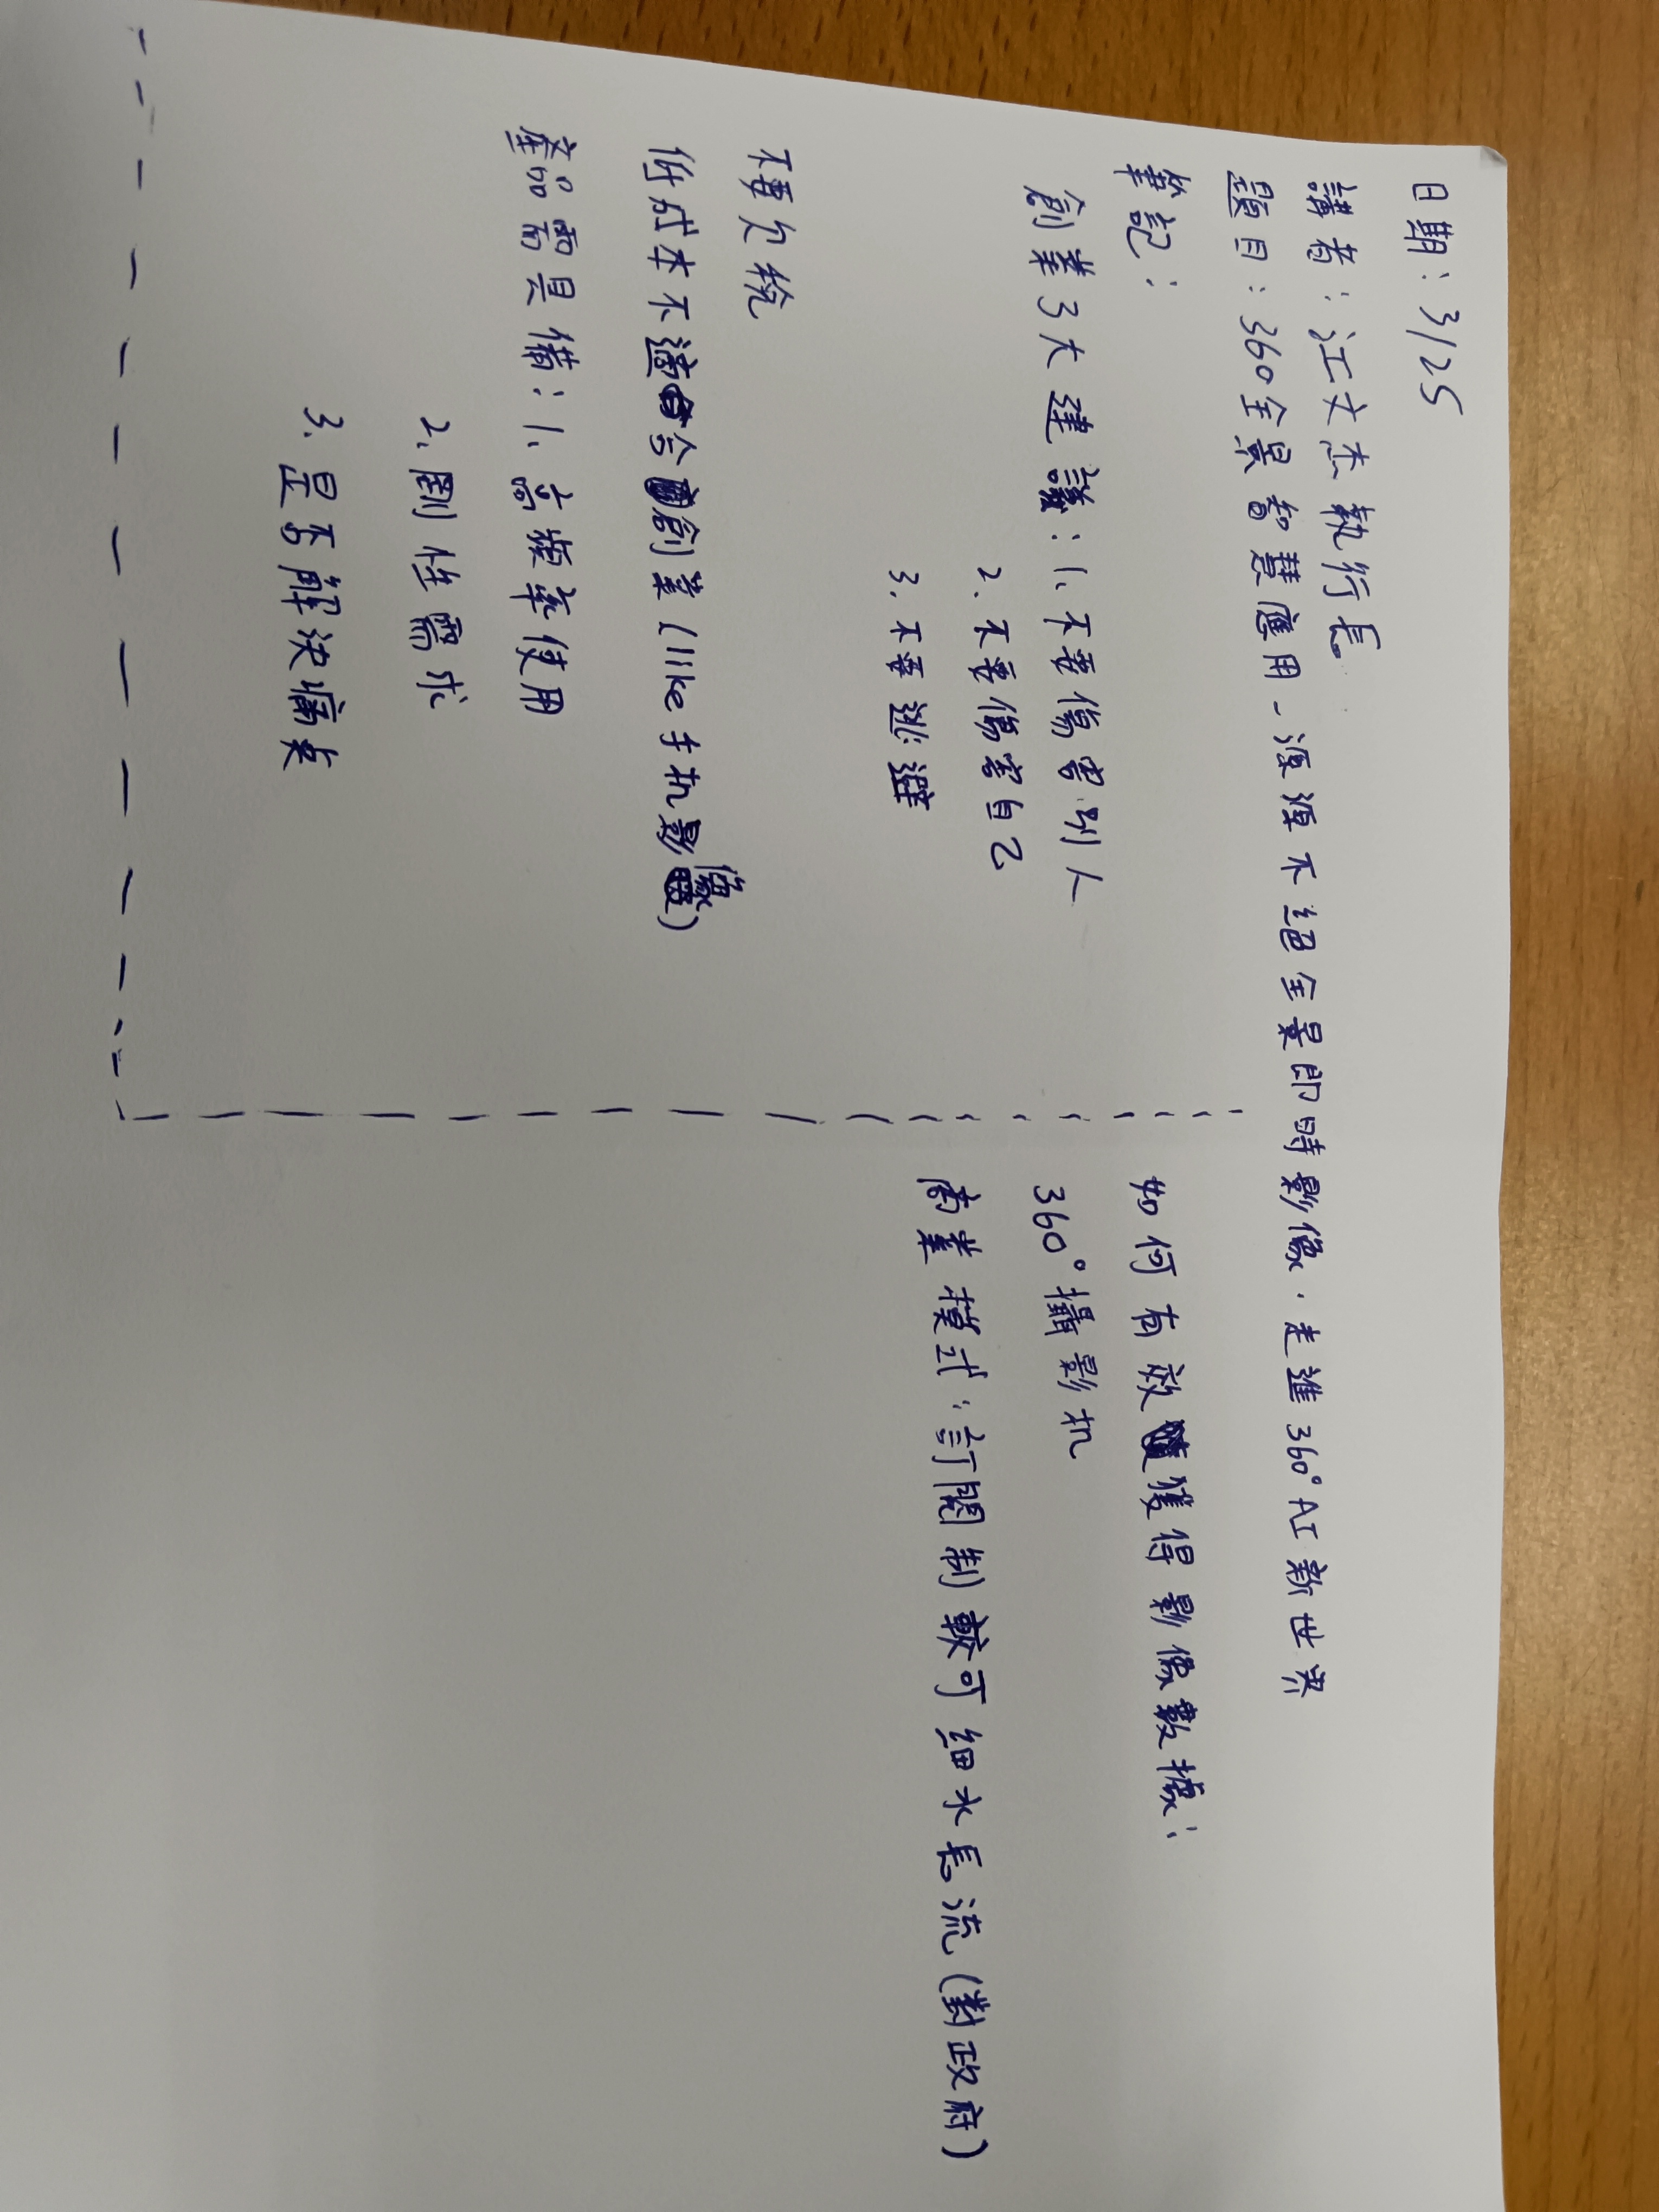 日期：3/25
講者：江文杰執行長
題目：360全景智慧應用－源源不絕全景即時影像．走進360°AI新世界
筆記：
創業3大建議：1、不要傷害別人
2、不要傷害自己
3、不要逃避
不要欠稅
低成本不適合創業(like手机影像)
產品需具備：1、高頻率使用
2、剛性需求
3、是否解決痛点
如何有效獲得影像數據：
360°攝影机
商業模式：訂閱制較可細水長流(對政府)